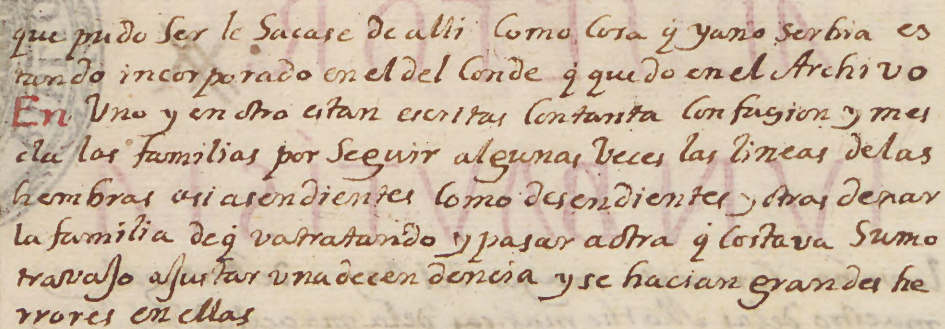 que pudo ser le Sacase de alli Como Cosa q̃ yano serbia es
tando incorporado en el del Conde q̃ quedo en el Archivo
En Uno y en otro estan escritas Contanta Confusion y mes
cla las familias por Seguir algunas Veces las lineas delas
hembras asi asendientes Como desendientes y otras dexar
la familia deq̃ vatratando y pasar aotra q̃ Costava Sumo
travajo ajustar vna decendencia y se hacian grandes he
rrores en ellas